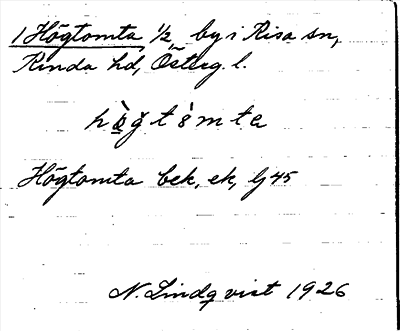 1 Högtomta 1/2 by i Risa sn,
Kinda hd, Österg. l.
hö̀gtòmta
Högtomta bek, ek, lj 45
N. Lindqvist 1926